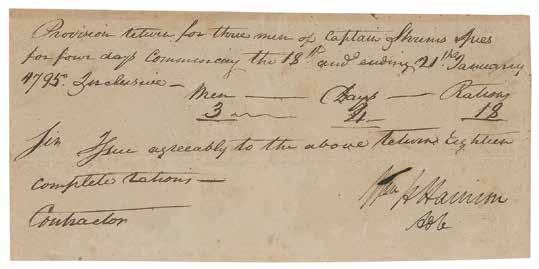 Provision return for three men of Captain Shrims Spies
for four days Commencing the 18th and ending 21th January
1795 Inclusive —
Men — Days — Rations
3 — 4 — 18
Sir Issue agreeably to the above return Eighteen
complete rations —
Wm H Harrison
Contractor